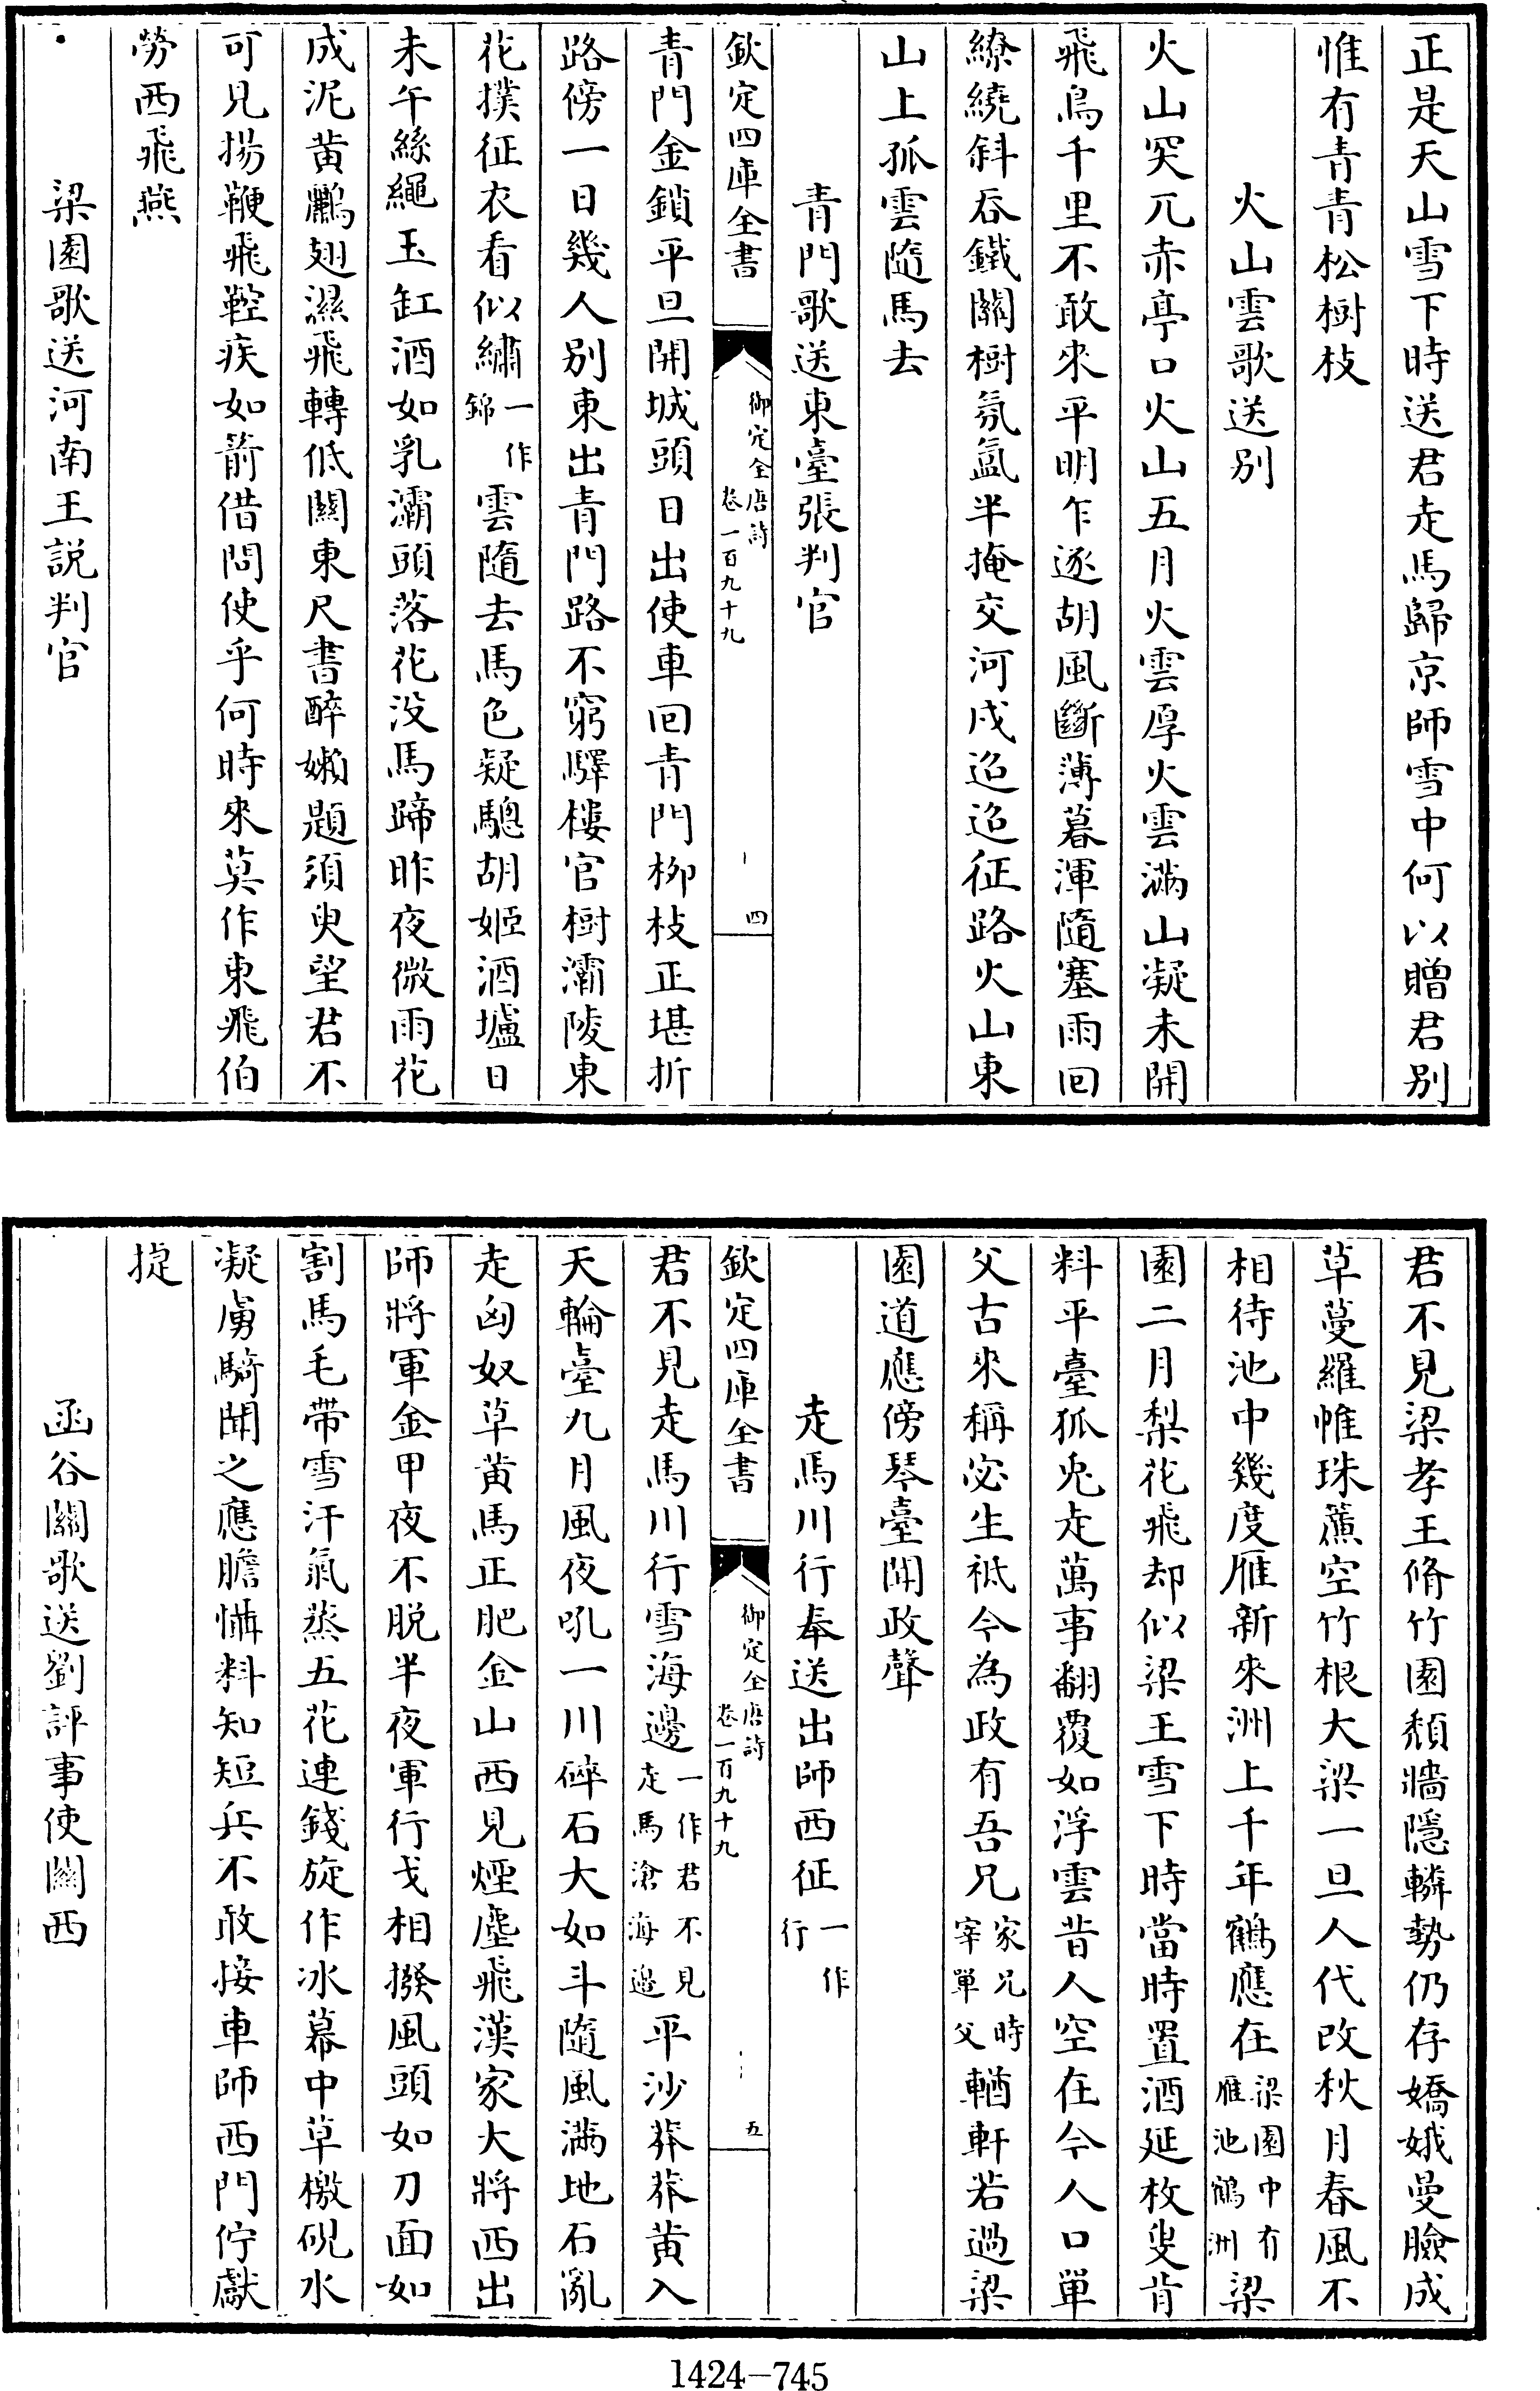 正是天山雪下時送君走馬歸京師雪中何以贈君别
惟有青青松樹枝
火山雲歌送别
火山突兀赤亭口火山五月火雲厚火雲滿山凝未開
飛鳥千里不敢來平明乍逐胡風斷薄暮渾隨塞雨回
繚繞斜吞鐵關樹氛氲半掩交河戍迢迢征路火山東
山上孤雲隨馬去
青門歌送東臺張判官
欽定四庫全書
御定全唐詩
卷一百九十九
四
青門金鎖平旦開城頭日出使車回青門柳枝正堪折
路傍一日幾人别東出青門路不窮驛樓官樹灞陵東
花撲征衣看似繡一作錦雲隨去馬色疑驄胡姬酒壚日
未午絲繩玉缸酒如乳灞頭落花没馬蹄昨夜微雨花
成泥黄鸝翅濕飛轉低關東尺書醉嬾題須臾望君不
可見揚鞭飛鞚疾如箭借問使乎何時來莫作東飛伯
勞西飛燕
梁園歌送河南王説判官
君不見梁孝王脩竹園頽牆隱轔勢仍存嬌娥曼臉成
草蔓羅帷珠簾空竹根大梁一旦人代改秋月春風不
相待池中幾度雁新來洲上千年鶴應在梁園中有雁池鶴洲梁
園二月梨花飛却似梁王雪下時當時置酒延枚叟肯
料平臺狐兎走萬事翻覆如浮雲昔人空在今人口單
父古來稱宓生祗今為政有吾兄家兄時宰單父輶軒若過梁
園道應傍琴臺聞政聲
走馬川行奉送出師西征一作行
欽定四庫全書
御定全唐詩
卷一百九十九
五
君不見走馬川行雪海邊一作君不見走馬滄海邉平沙莽莽黄入
天輪臺九月風夜吼一川碎石大如斗隨風滿地石亂
走匈奴草黄馬正肥金山西見煙塵飛漢家大將西出
師將軍金甲夜不脱半夜軍行戈相撥風頭如刀面如
割馬毛帶雪汗氣蒸五花連錢旋作冰幕中草檄硯水
凝虜騎聞之應膽懾料知短兵不敢接車師西門佇獻
捷
函谷關歌送劉評事使關西
1424-745